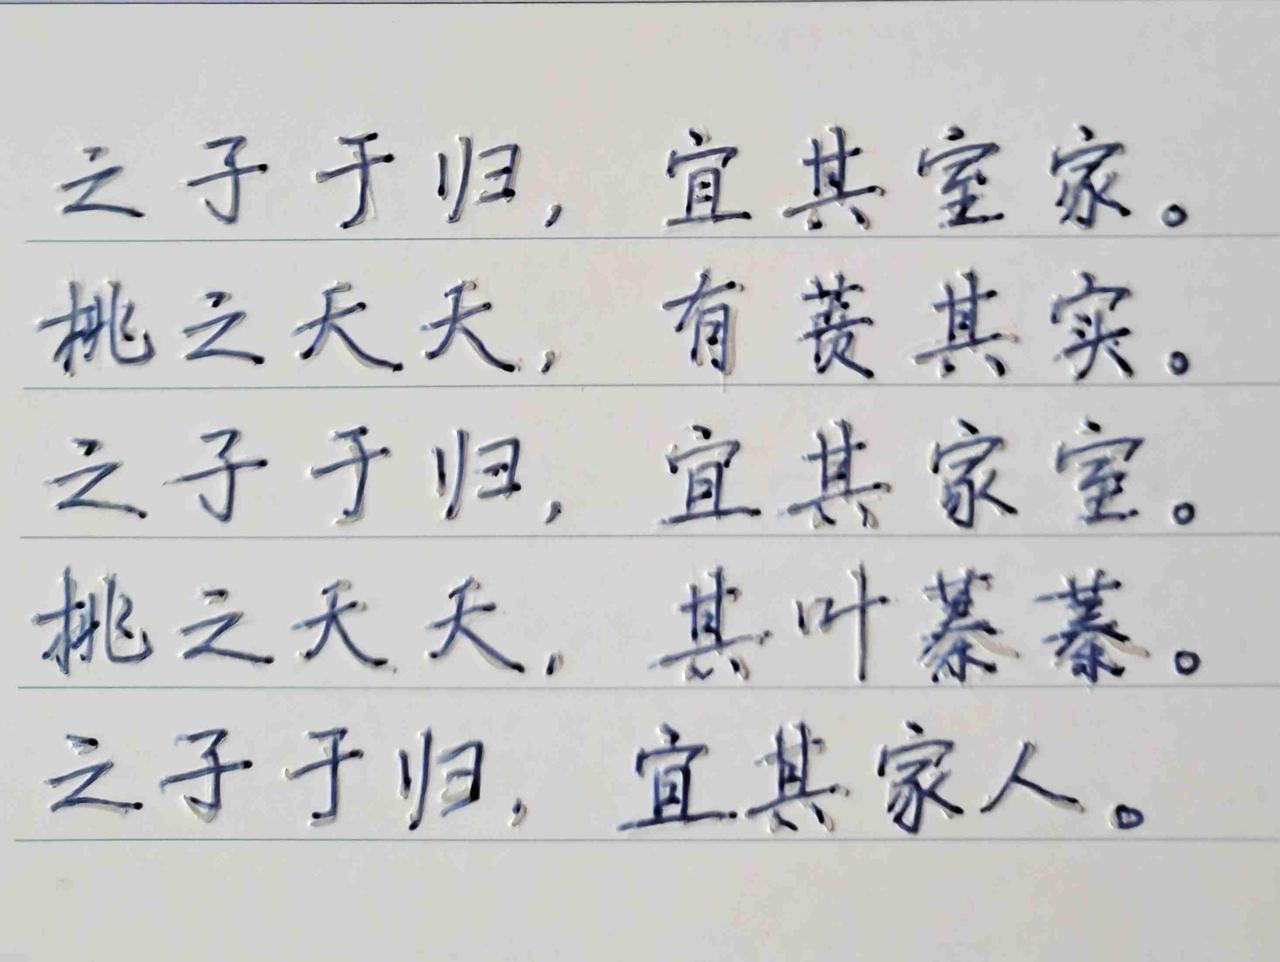 之子于归，宜其室家。
桃之夭夭，有蕡其实。
之子于归，宜其家室。
桃之夭夭，其叶蓁蓁。
之子于归，宜其家人。